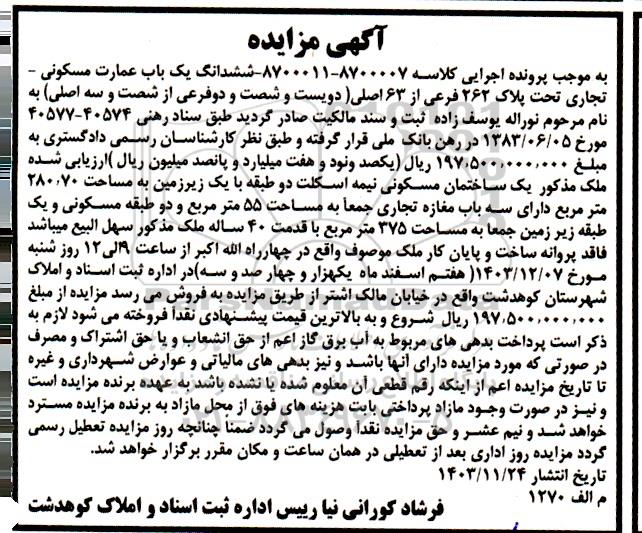 آگهی مزایده
به موجب پرونده اجرایی کلاسه ۸۷۰۰۰۰۷-۸۷۰۰۰۱۱-ششدانگ یک باب عمارت مسکونی -
تجاری تحت پلاک ۲۶۲ فرعی از ۶۳ اصلی( دویست و شصت و دوفرعی از شصت و سه اصلی) به
نام مرحوم نوراله یوسف زاده ثبت و سند مالکیت صادر گردید طبق سناد رهنی ۴۰۵۷۴-۴۰۵۷۷
مورخ ۱۳۸۳/۰۶/۰۵ در رهن بانک ملی قرار گرفته و طبق نظر کارشناسان رسمی دادگستری به
مبلغ ۱۹۷،۵۰۰،۰۰۰،۰۰۰ ریال (یکصد ونود و هفت میلیارد و پانصد میلیون ریال )ارزیابی شده
ملک مذکور یک ساختمان مسکونی نیمه اسکلت دو طبقه با یک زیرزمین به مساحت ۲۸۰،۷۰
متر مربع دارای سه باب مغازه تجاری جمعا به مساحت ۵۵ متر مربع و دو طبقه مسکونی و یک
طبقه زیر زمین جمعا به مساحت ۳۷۵ متر مربع با قدمت ۴۰ ساله ملک مذکور سهل البیع میباشد
فاقد پروانه ساخت و پایان کار ملک موصوف واقع در چهارراه الله اکبر از ساعت ۹الی۱۲ روز شنبه
مورخ ۱۴۰۳/۱۲/۰۷( هفتم اسفند ماه یکهزار و چهار صد و سه)در اداره ثبت اسناد و املاک
شهرستان کوهدشت واقع در خیابان مالک اشتر از طریق مزایده به فروش می رسد مزایده از مبلغ
۱۹۷،۵۰۰،۰۰۰،۰۰۰ ریال شروع و به بالاترین قیمت پیشنهادی نقدا فروخته می شود لازم به
ذکر است پرداخت بدهی های مربوط به آب برق گاز اعم از حق انشعاب و یا حق اشتراک و مصرف
در صورتی که مورد مزایده دارای آنها باشد و نیز بدهی های مالیاتی و عوارض شهرداری و غیره
تا تاریخ مزایده اعم از اینکه رقم قطعی آن معلوم شده یا نشده باشد به عهده برنده مزایده است
و نیز در صورت وجود مازاد پرداختی بابت هزینه های فوق از محل مازاد به برنده مزایده مسترد
خواهد شد و نیم عشر و حق مزایده نقدا وصول می گردد ضمنا چنانچه روز مزایده تعطیل رسمی
گردد مزایده روز اداری بعد از تعطیلی در همان ساعت و مکان مقرر برگزار خواهد شد.
تاریخ انتشار ۱۴۰۳/۱۱/۲۴
م الف ۱۲۷۰
فرشاد کورانی نیا رییس اداره ثبت اسناد و املاک کوهدشت